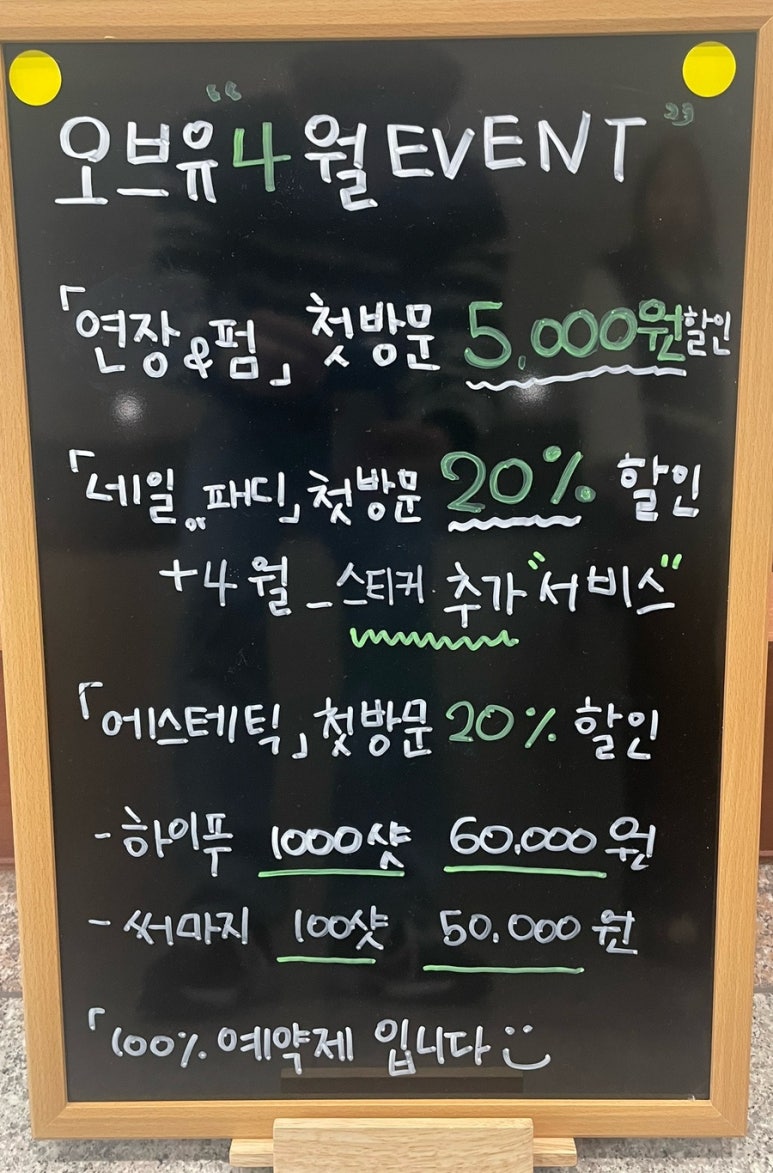 오브유 "4월 EVENT"
「연장&펌」 첫방문 5,000원 할인
「네일,, 패디」 첫방문 20% 할인
+4월_스티커 추가 "서비스"
「에스테틱」 첫방문 20% 할인
- 하이푸 1000샷 60,000원
- 써마지 100샷 50,000원
「100% 예약제 입니다